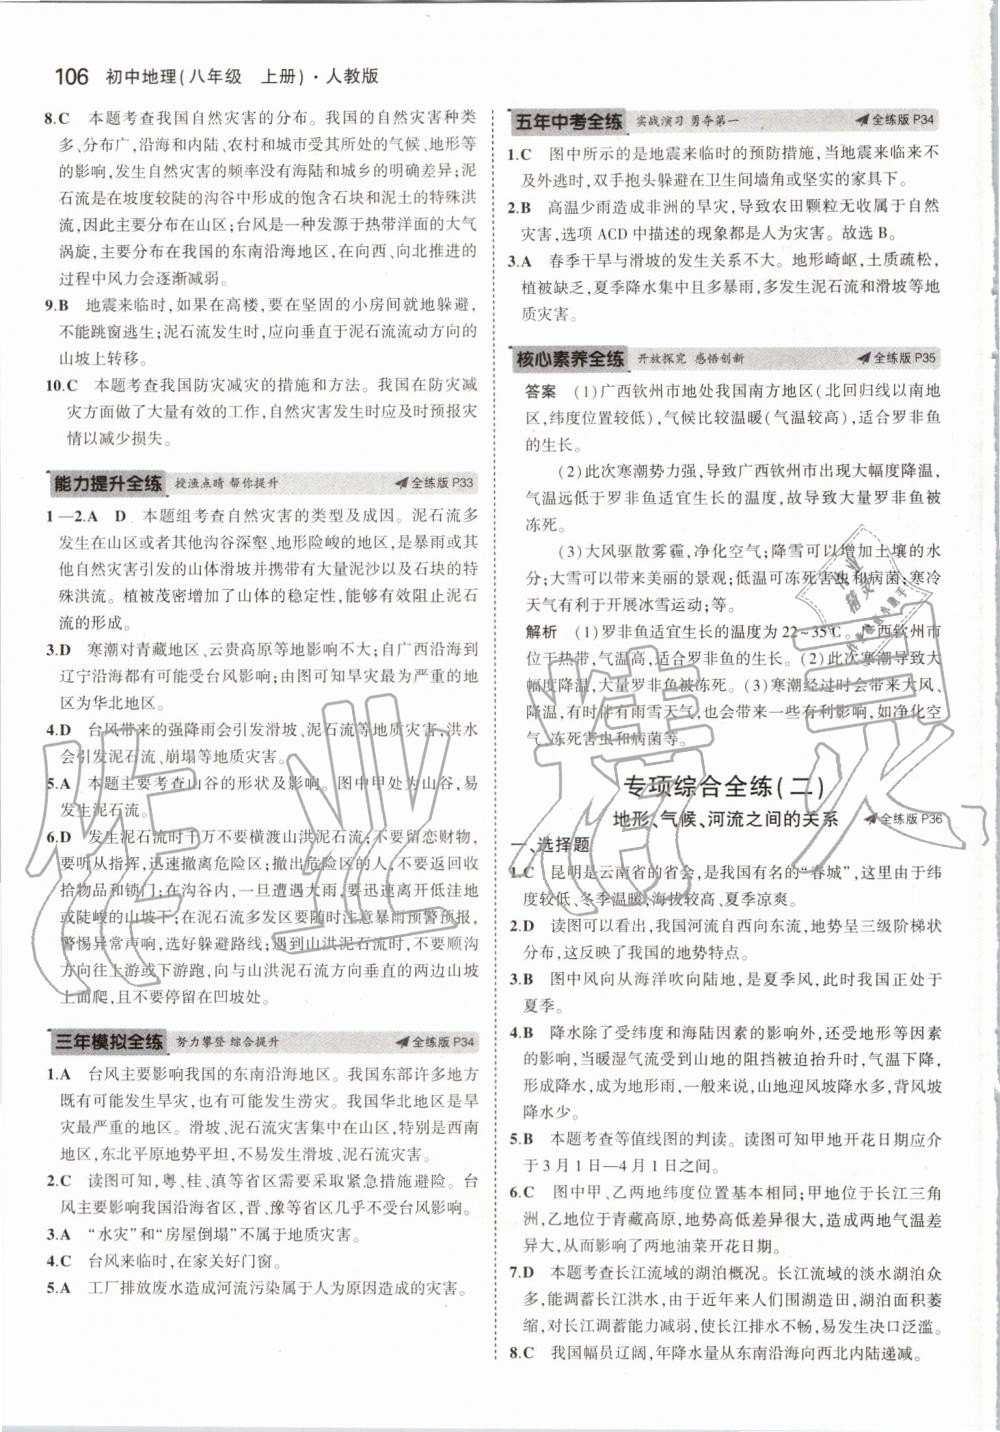 106 初中地理(八年级 上册)·人教版
8.C 本题考查我国自然灾害的分布。我国的自然灾害种类
多、分布广,沿海和内陆、农村和城市受其所处的气候、地形等
的影响,发生自然灾害的频率没有海陆和城乡的明确差异;泥
石流是在坡度较陡的沟谷中形成的饱含石块和泥土的特殊洪
流,因此主要分布在山区;台风是一种发源于热带洋面的大气
涡旋,主要分布在我国的东南沿海地区,在向西、向北推进的
过程中风力会逐渐减弱。
9.B 地震来临时,如果在高楼,要在坚固的小房间就地躲避,
不能跳窗逃生;泥石流发生时,应向垂直于泥石流流动方向的
山坡上转移。
10.C 本题考查我国防灾减灾的措施和方法。我国在防灾减
灾方面做了大量有效的工作,自然灾害发生时应及时预报灾
情以减少损失。
能力提升全练 授渔点睛 帮你提升 全练版 P33
1—2.A D 本题组考查自然灾害的类型及成因。泥石流多
发生在山区或者其他沟谷深壑、地形险峻的地区,是暴雨或其
他自然灾害引发的山体滑坡并携带有大量泥沙以及石块的
特殊洪流。植被茂密增加了山体的稳定性,能有效阻止泥石
流的形成。
3.D 寒潮对青藏地区、云贵高原等地影响不大;自广西沿海到
辽宁沿海都有可能受台风影响;由图可知旱灾最为严重的地
区为华北地区。
4.D 台风带来的强降雨会引发滑坡、泥石流等地质灾害,洪水
会引发泥石流、崩塌等地质灾害。
5.A 本题主要考查山谷的形状及影响。图中甲处为山谷,易
发生泥石流。
6.D 发生泥石流时千万不要横渡山洪泥石流;不要留恋财物,
要听从指挥,迅速撤离危险区;撤出危险区的人,不要返回收
拾物品和锁门;在沟谷内,一旦遭遇大雨,要迅速离开低洼地
或陡峻的山坡下;在泥石流多发区要随时注意暴雨预警预报,
警惕异常声响,选好躲避路线;遇到山洪泥石流时,不要顺沟
方向往上游或下游跑,向与山洪泥石流方向垂直的两边山坡
上面爬,且不要停留在凹坡处。
三年模拟全练 努力攀登 综合提升 全练版 P34
1.A 台风主要影响我国的东南沿海地区。我国东部许多地方
既有可能发生旱灾,也有可能发生涝灾。我国华北地区是旱
灾最严重的地区。滑坡、泥石流灾害集中在山区,特别是西南
地区,东北平原地势平坦,不易发生滑坡、泥石流灾害。
2.C 读图可知,粤、桂、滇等省区需要采取紧急措施避险。台
风主要影响我国沿海省区,晋、豫等省区几乎不受台风影响。
3.A “水灾”和“房屋倒塌”不属于地质灾害。
4.C 台风来临时,在家关好门窗。
5.A 工厂排放废水造成河流污染属于人为原因造成的灾害。
五年中考全练 实战演习 勇夺第一 全练版 P34
1.C 图中所示的是地震来临时的预防措施,当地震来临来不
及外逃时,双手抱头躲避在卫生间墙角或坚实的家具下。
2.B 高温少雨造成非洲的旱灾,导致农田颗粒无收属于自然
灾害,选项 ACD 中描述的现象都是人为灾害。故选 B。
3.A 春季干旱与滑坡的发生关系不大。地形崎岖,土质疏松,
植被缺乏,夏季降水集中且多暴雨,多发生泥石流和滑坡等地
质灾害。
核心素养全练 开放探究 感悟创新 全练版 P35
答案 (1)广西钦州市地处我国南方地区(北回归线以南地
区,纬度位置较低),气候比较温暖(气温较高),适合罗非鱼
的生长。
(2)此次寒潮势力强,导致广西钦州市出现大幅度降温,
气温远低于罗非鱼适宜生长的温度,故导致大量罗非鱼被
冻死。
(3)大风驱散雾霾,净化空气;降雪可以增加土壤的水
分;大雪可以带来美丽的景观;低温可冻死害虫和病菌;寒冷
天气有利于开展冰雪运动;等。
解析 (1)罗非鱼适宜生长的温度为 22~35℃。广西钦州市
位于热带,气温高,适合罗非鱼的生长。(2)此次寒潮导致大
幅度降温,大量罗非鱼被冻死。(3)寒潮经过时会带来大风、
降温,有时伴有雨雪天气,也会带来一些有利影响,如净化空
气、冻死害虫和病菌等。
专项综合全练(二)
地形、气候、河流之间的关系 全练版 P36
一、选择题
1.C 昆明是云南省的省会,是我国有名的“春城”,这里由于纬
度较低、冬季温暖,海拔较高、夏季凉爽。
2.D 读图可以看出,我国河流自西向东流,地势呈三级阶梯状
分布,这反映了我国的地势特点。
3.B 图中风向从海洋吹向陆地,是夏季风,此时我国正处于
夏季。
4.B 降水除了受纬度和海陆因素的影响外,还受地形等因素
的影响,当暖湿气流受到山地的阻挡被迫抬升时,气温下降,
形成降水,成为地形雨,一般来说,山地迎风坡降水多,背风坡
降水少。
5.B 本题考查等值线图的判读。读图可知甲地开花日期应介
于 3 月 1 日—4 月 1 日之间。
6.C 图中甲、乙两地纬度位置基本相同;甲地位于长江三角
洲,乙地位于青藏高原,地势高低差异很大,造成两地气温差
异大,从而影响了两地油菜开花日期。
7.D 本题考查长江流域的湖泊概况。长江流域的淡水湖泊众
多,能调蓄长江洪水,由于近年来人们围湖造田,湖泊面积萎
缩,对长江调蓄能力减弱,使长江排水不畅,易发生决口泛滥。
8.C 我国幅员辽阔,年降水量从东南沿海向西北内陆递减。